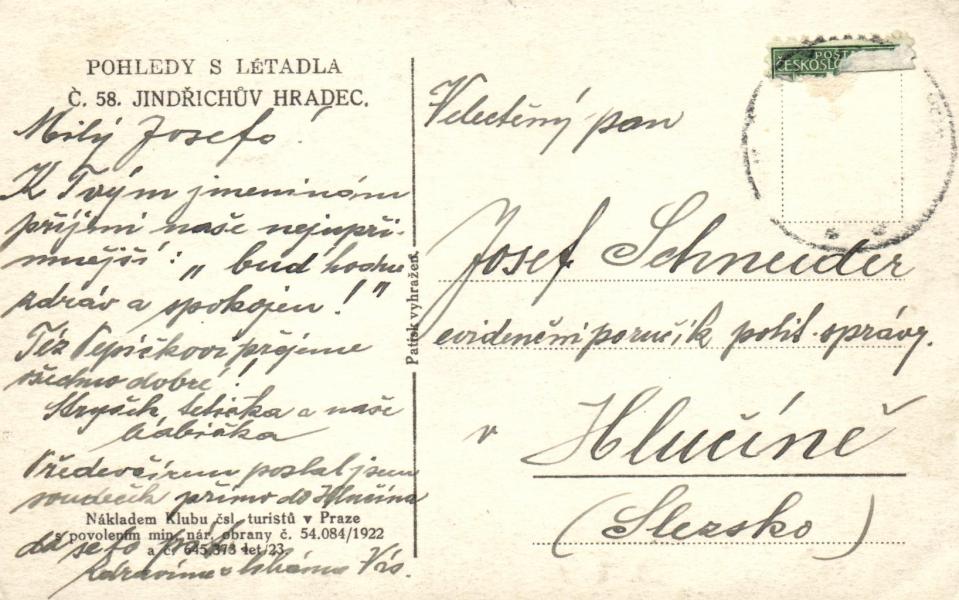 POHLEDY S LETADLA
Č. 58. JINDŘICHŮV HRADEC.
Milý Josefe!
K Tvým jmeninám
přijmi naše nejupří-
mnější: „buď hodně
zdráv a spokojen!"
Též Pepíčkovi přejeme
všechno dobré!
Strýček, tetička a naše
babička
Předevčírem poslal jsem
soudeček přímo do Hlučína
Nákladem Klubu čsl. turistů v Praze
s povolením min. nár. obrany č. 54.084/1922
a č. 645.373 let/23.
dá se to
Zdravíme a líbáme Vás.
Patisk vyhražen.
POŠTA
ČESKOSLO
Velectěný pan
Josef Schneider
evidenční poručík polit. správy.
v Hlučíně
(Slezsko)